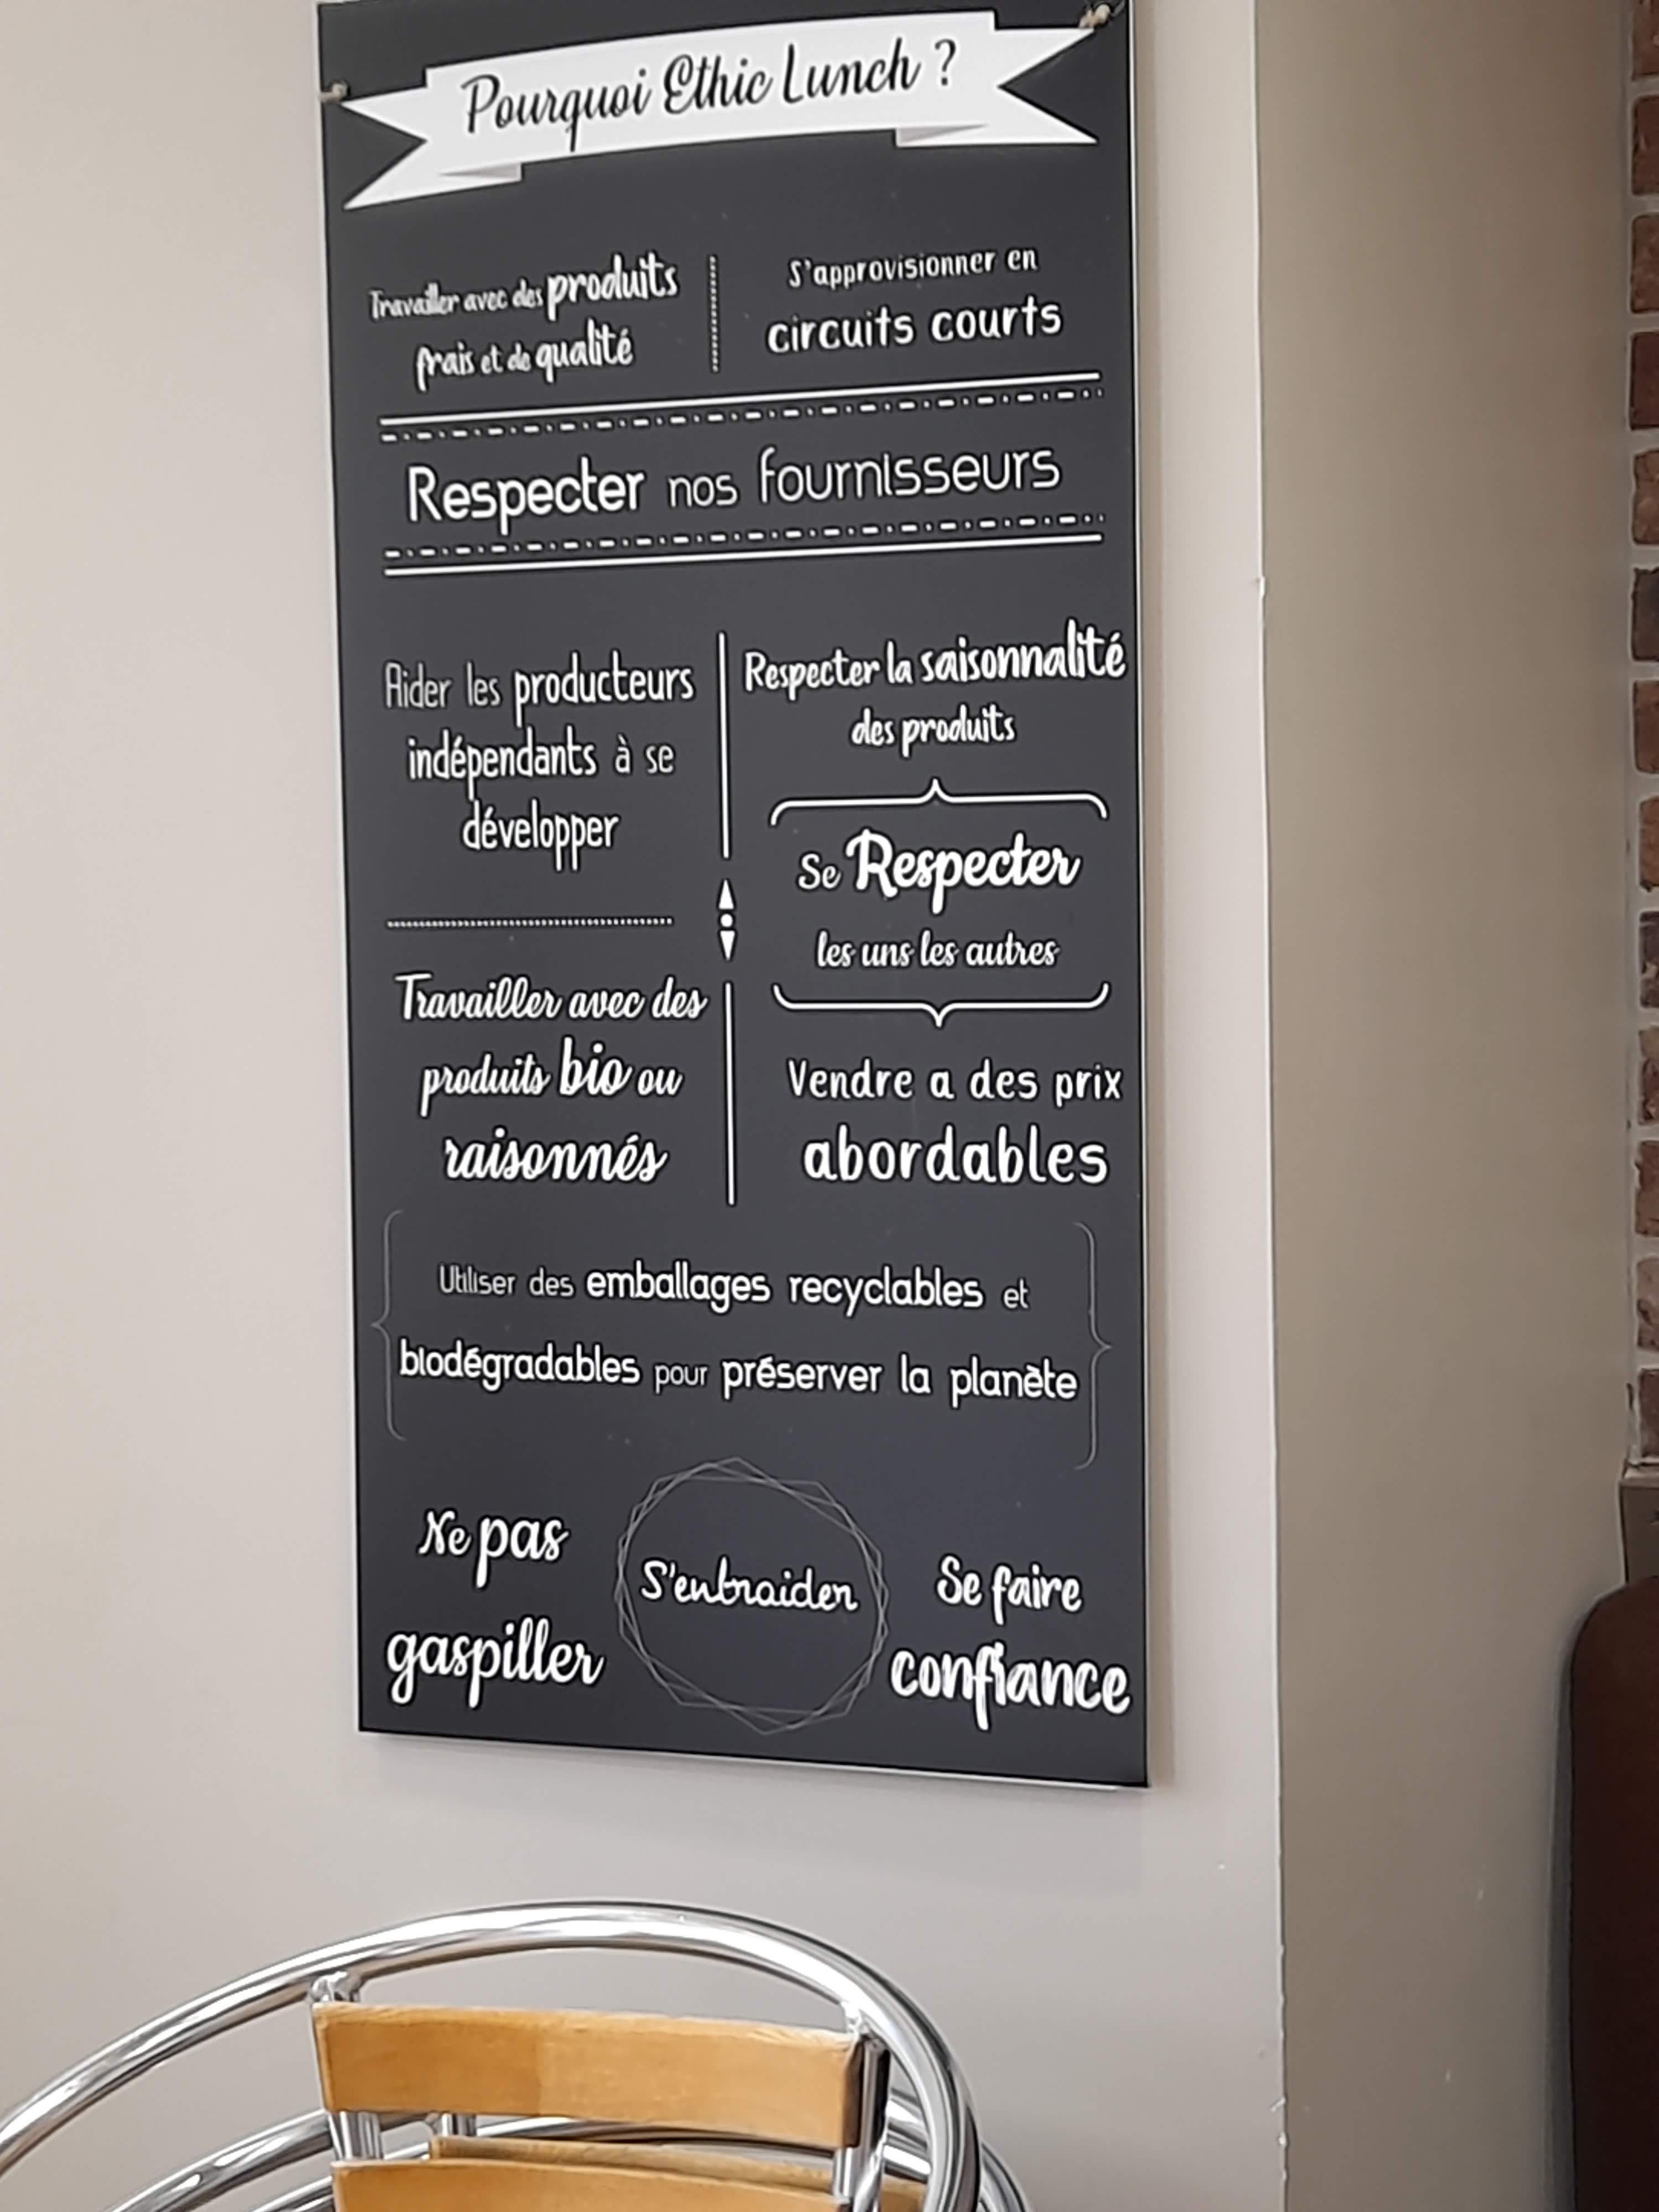 Pourquoi Ethic Lunch ?
Travailler avec des produits
frais et de qualité
S'approvisionner en
circuits courts
Respecter nos fournisseurs
Aider les producteurs
indépendants à se
développer
Travailler avec des
produits bio ou
raisonnés
Respecter la saisonnalité
des produits
Se Respecter
les uns les autres
Vendre a des prix
abordables
Utiliser des emballages recyclables et
biodégradables pour préserver la planète
Ne pas
gaspiller
S'entraider
Se faire
confiance